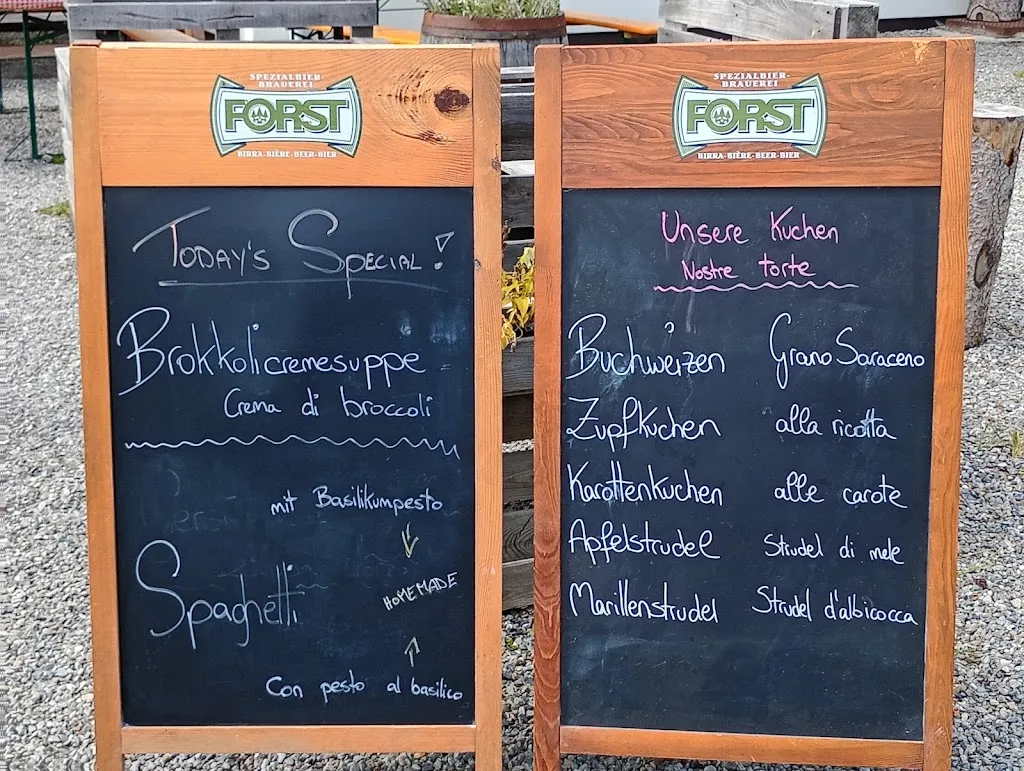 SPEZIALBIER-
BRAUEREI
FORST
BIRRA-BIÈRE-BEER-BIER
Today's Special!
Brokkolicremesuppe
Crema di broccoli
mit Basilikumpesto
HOMEMADE
Spaghetti
Con pesto al basilico
SPEZIALBIER-
BRAUEREI
FORST
BIRRA-BIÈRE-BEER-BIER
Unsere Kuchen
Nostre torte
Buchweizen Grano Saraceno
Zupfkuchen alla ricotta
Karottenkuchen alle carote
Apfelstrudel Strudel di mele
Marillenstrudel Strudel d'albicocca